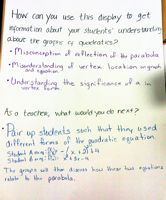 How can you use this display to get
information about your students' understanding
about the graphs of quadratics?
• Misconception of reflection of the parabola
• Misunderstanding of vertex location on graph
and equation
• Understanding the significance of a in
vertex form
As a teacher, what would you do next?
• Pair up students such that they used
different forms of the quadratic equation.
Student A may:
Student B may:
The groups will then discuss how these two equations
relate to the parabola.